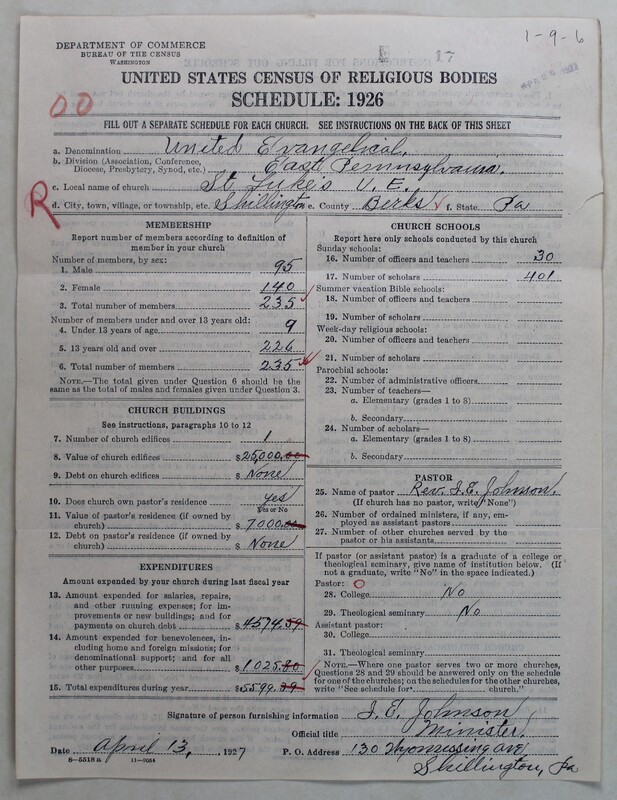 1-9-6
17
DEPARTMENT OF COMMERCE
BUREAU OF THE CENSUS
WASHINGTON
UNITED STATES CENSUS OF RELIGIOUS BODIES
SCHEDULE: 1926
FILL OUT A SEPARATE SCHEDULE FOR EACH CHURCH. SEE INSTRUCTIONS ON THE BACK OF THIS SHEET
a. Denomination United Evangelical
b. Division (Association, Conference, Diocese, Presbytery, Synod, etc.) East Pennsylvania.
c. Local name of church St. Luke's U. E.
R
d. City, town, village, or township, etc. Shillington e. County Berks f. State Pa
MEMBERSHIP
Report number of members according to definition of
member in your church
Number of members, by sex:
1. Male 95
2. Female 140
3. Total number of members 235
Number of members under and over 13 years old:
4. Under 13 years of age 9
5. 13 years old and over 226
6. Total number of members 235
NOTE.—The total given under Question 6 should be the
same as the total of males and females given under Question 3.
CHURCH BUILDINGS
See instructions, paragraphs 10 to 12
7. Number of church edifices 1
8. Value of church edifices $25,000.00
9. Debt on church edifices $ None
10. Does church own pastor's residence yes
Yes or No
11. Value of pastor's residence (if owned by
church) $ 7,000.00
12. Debt on pastor's residence (if owned by
church) $ None
EXPENDITURES
Amount expended by your church during last fiscal year
13. Amount expended for salaries, repairs,
and other running expenses; for im-
provements or new buildings; and for
payments on church debt $4574.59
14. Amount expended for benevolences, in-
cluding home and foreign missions; for
denominational support; and for all
other purposes $1,025.80
15. Total expenditures during year $5599.39
CHURCH SCHOOLS
Report here only schools conducted by this church
Sunday schools:
16. Number of officers and teachers 30
17. Number of scholars 401
Summer vacation Bible schools:
18. Number of officers and teachers
19. Number of scholars
Week-day religious schools:
20. Number of officers and teachers
21. Number of scholars
Parochial schools:
22. Number of administrative officers
23. Number of teachers—
a. Elementary (grades 1 to 8)
b. Secondary
24. Number of scholars—
a. Elementary (grades 1 to 8)
b. Secondary
PASTOR
25. Name of pastor Rev. I. E. Johnson.
(If church has no pastor, write "None")
26. Number of ordained ministers, if any, em-
ployed as assistant pastors
27. Number of other churches served by the
pastor or his assistants
If pastor (or assistant pastor) is a graduate of a college or
theological seminary, give name of institution below. (If
not a graduate, write "No" in the space indicated.)
Pastor:
28. College No
29. Theological seminary No
Assistant pastor:
30. College
31. Theological seminary
NOTE.—Where one pastor serves two or more churches,
Questions 28 and 29 should be answered only on the schedule
for one of the churches; on the schedules for the other churches,
write "See schedule for church."
Signature of person furnishing information I. E. Johnson
Official title Minister.
Date April 13, 1927 P. O. Address 130 Wyomissing Ave
8—5518 a 11—9054
Shillington, Pa